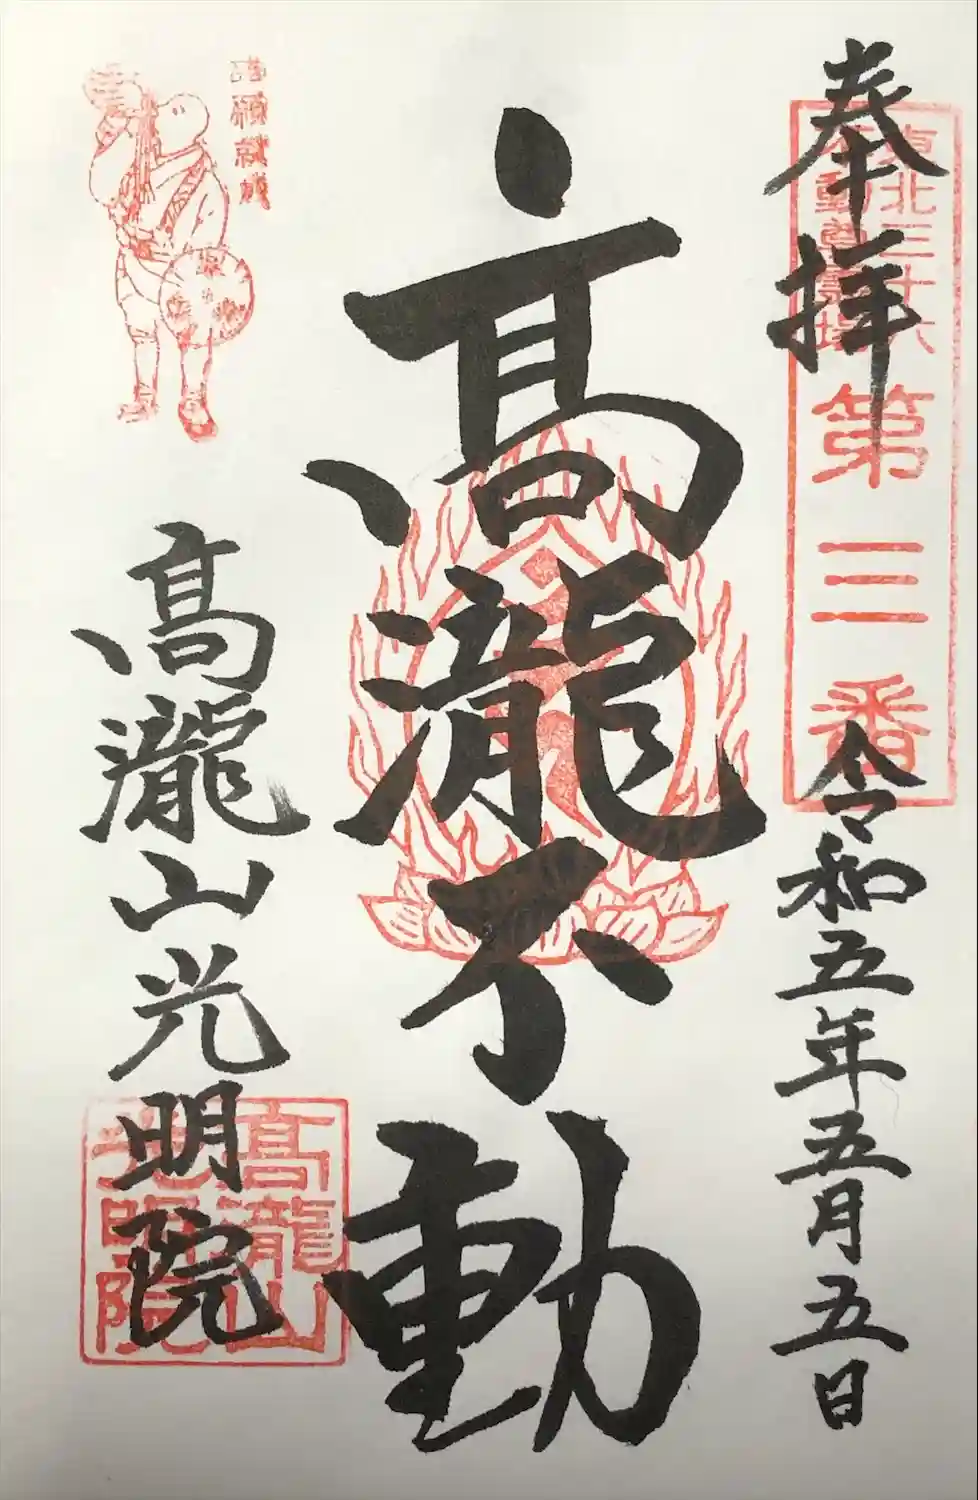 奉拝
東北三十六
不動尊霊場
第三番
令和五年五月五日
髙瀧不動
諸願成就
髙瀧山光明院
髙瀧山
光明院